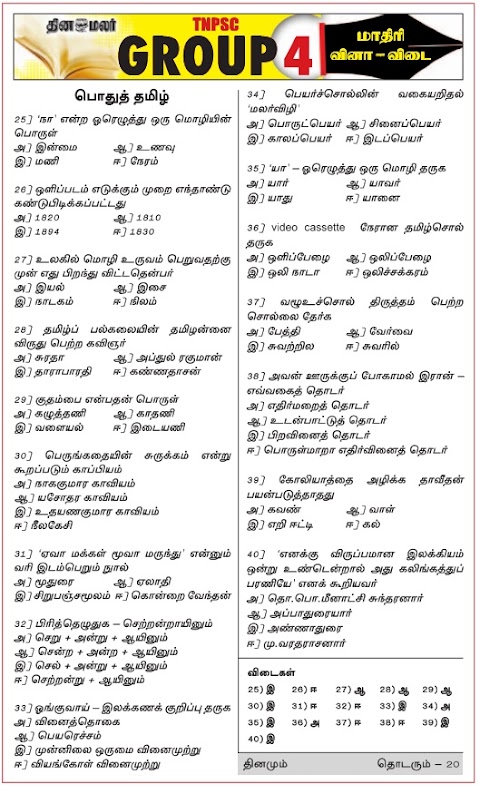 தினமலர்
TNPSC
GROUP 4
மாதிரி
வினா - விடை
பொதுத் தமிழ்
25] 'நா' என்ற ஓரெழுத்து ஒரு மொழியின்
பொருள்
அ] இன்மை ஆ] உணவு
இ] மணி ஈ] நேரம்
26] ஒளிப்படம் எடுக்கும் முறை எந்தாண்டு
கண்டுபிடிக்கப்பட்டது
அ] 1820 ஆ] 1810
இ] 1894 ஈ] 1830
27] உலகில் மொழி உருவம் பெறுவதற்கு
முன் எது பிறந்து விட்டதென்பர்
அ] இயல் ஆ] இசை
இ] நாடகம் ஈ] நிலம்
28] தமிழ்ப் பல்கலையின் தமிழன்னை
விருது பெற்ற கவிஞர்
அ] சுரதா ஆ] அப்துல் ரகுமான்
இ] தாராபாரதி ஈ] கண்ணதாசன்
29] குதம்பை என்பதன் பொருள்
அ] கழுத்தணி ஆ] காதணி
இ] வளையல் ஈ] இடையணி
30] பெருங்கதையின் சுருக்கம் என்று
கூறப்படும் காப்பியம்
அ] நாககுமார காவியம்
ஆ] யசோதர காவியம்
இ] உதயணகுமார காவியம்
ஈ] நீலகேசி
31] 'ஏவா மக்கள் மூவா மருந்து' என்னும்
வரி இடம்பெறும் நுால்
அ] மூதுரை ஆ] ஏலாதி
இ] சிறுபஞ்சமூலம் ஈ] கொன்றை வேந்தன்
32] பிரித்தெழுதுக – செற்றன்றாயினும்
அ] செறு + அன்று + ஆயினும்
ஆ] சென்ற + அன்ற + ஆயினும்
இ] செல் + அன்று + ஆயினும்
ஈ] செற்றன்று + ஆயினும்
33] ஓங்குவாய் – இலக்கணக் குறிப்பு தருக
அ] வினைத்தொகை
ஆ] பெயரெச்சம்
இ] முன்னிலை ஒருமை வினைமுற்று
ஈ] வியங்கோள் வினைமுற்று
34] பெயர்ச்சொல்லின் வகையறிதல்
'மலர்விழி'
அ] பொருட்பெயர் ஆ] சினைப்பெயர்
இ] காலப்பெயர் ஈ] இடப்பெயர்
35] 'யா' – ஓரெழுத்து ஒரு மொழி தருக
அ] யார் ஆ] யாவர்
இ] யாது ஈ] யானை
36] video cassette நேரான தமிழ்சொல்
தருக
அ] ஒளிப்பேழை ஆ] ஒலிப்பேழை
இ] ஒலி நாடா ஈ] ஒலிச்சக்கரம்
37] வழூஉச்சொல் திருத்தம் பெற்ற
சொல்லை தேர்க
அ] பேத்தி ஆ] வேர்வை
இ] சுவற்றில ஈ] சுவரில்
38] அவன் ஊருக்குப் போகாமல் இரான் –
எவ்வகைத் தொடர்
அ] எதிர்மறைத் தொடர்
ஆ] உடன்பாட்டுத் தொடர்
இ] பிறவினைத் தொடர்
ஈ] பொருள்மாறா எதிர்வினைத் தொடர்
39] கோலியாத்தை அழிக்க தாவீதன்
பயன்படுத்தாதது
அ] கவண் ஆ] வாள்
இ] எறி ஈட்டி ஈ] கல்
40] 'எனக்கு விருப்பமான இலக்கியம்
ஒன்று உண்டென்றால் அது கலிங்கத்துப்
பரணியே' எனக் கூறியவர்
அ] தொ.பொ.மீனாட்சி சுந்தரனார்
ஆ] அப்பாதுரையார்
இ] அண்ணாதுரை
ஈ] மு.வரதராசனார்
விடைகள்
25) இ 26) ஈ 27) ஆ 28) ஆ 29) ஆ
30) இ 31) ஈ 32) ஈ 33) இ 34) அ
35) இ 36) அ 37) ஈ 38) ஈ 39) இ
40) இ
தினமும் தொடரும் – 20